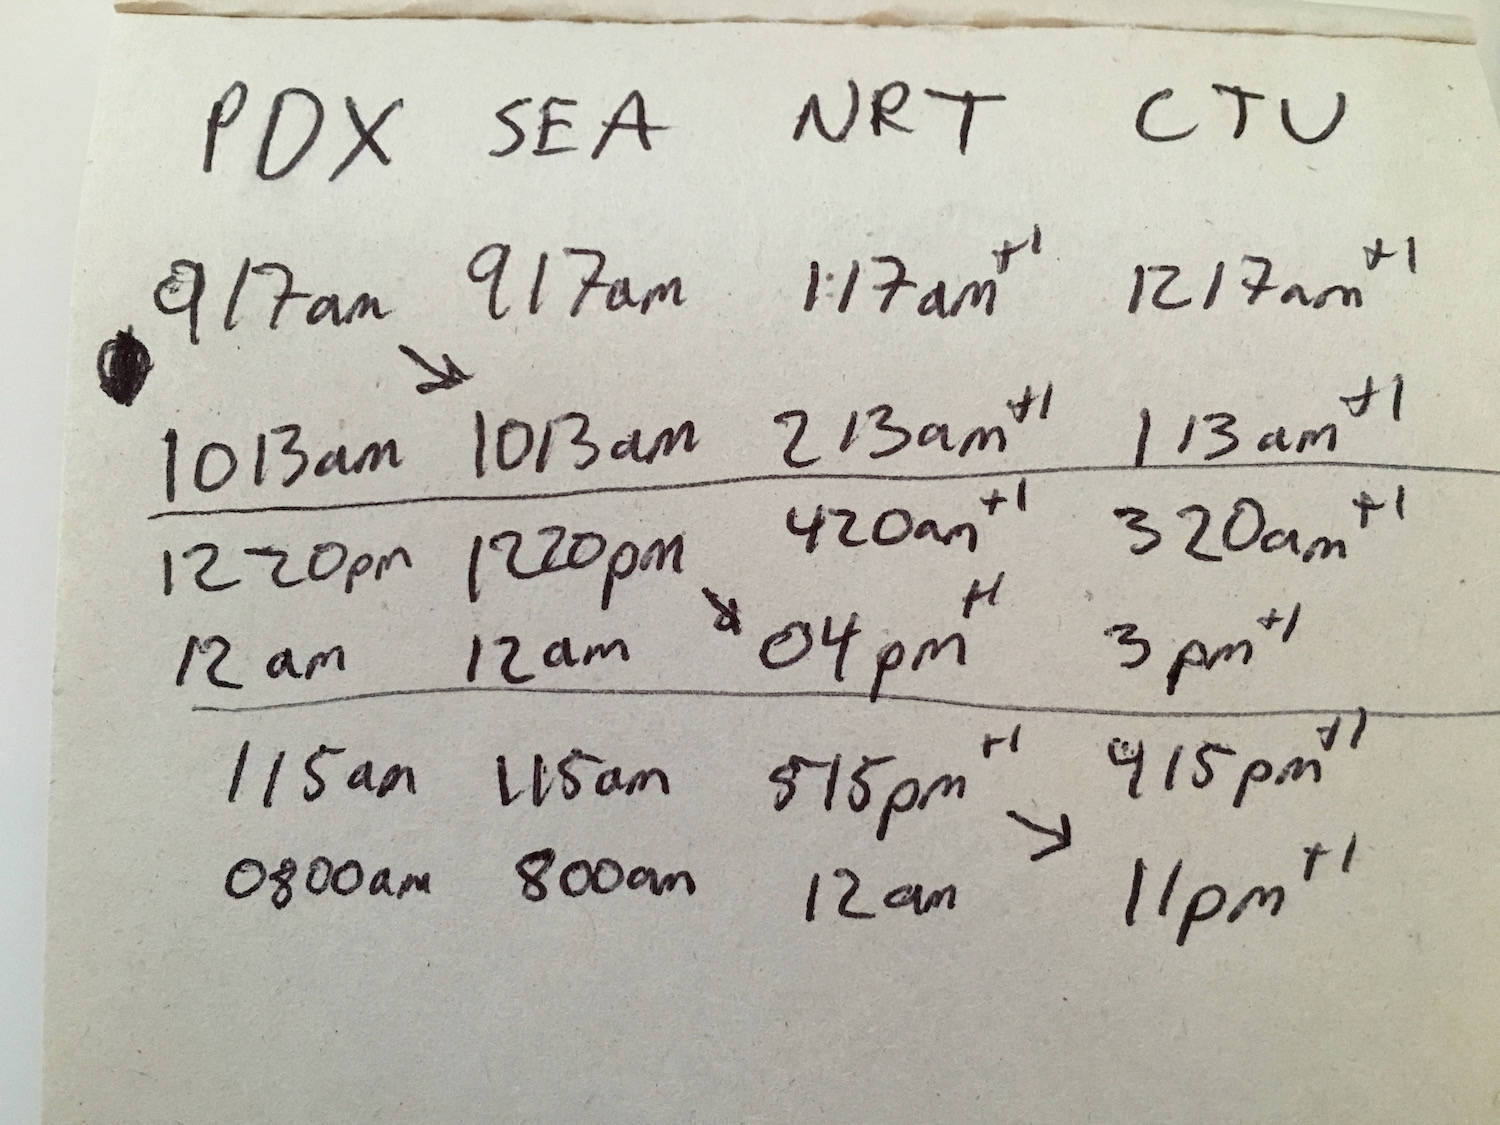 PDX SEA NRT CTU
917am 917am 1:17am+1 1217am+1
1013am 1013am 213am+1 113am+1
1220pm 1220pm 420am+1 320am+1
12am 12am 04pm+1 3pm+1
115am 115am 515pm+1 415pm+1
0800am 800am 12am 11pm+1